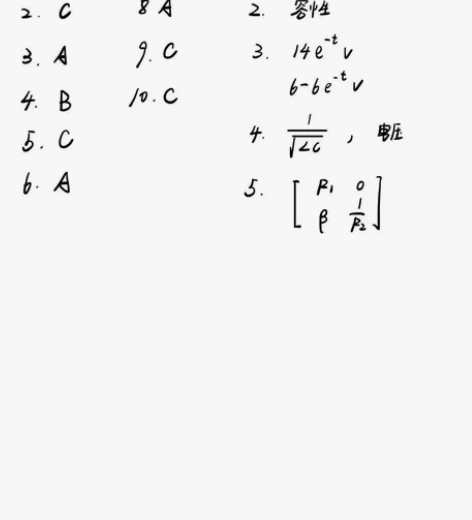 2. C
3. A
4. B
5. C
6. A
8 A
9. C
10. C
2. 容性
3. 14e^{-t} V
6-6e^{-t} V
4. \frac{1}{\sqrt{LC}} , 电压
5. \begin{bmatrix} R_1 & 0 \\ β & \frac{1}{R_2} \end{bmatrix}